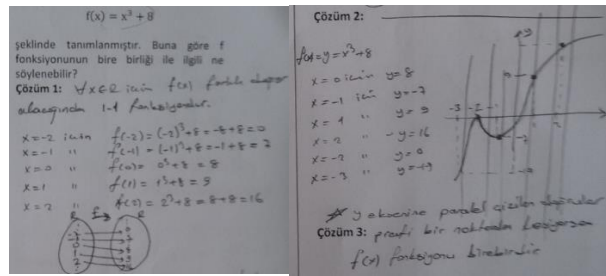 f(x) = x³ + 8
şeklinde tanımlanmıştır. Buna göre f
fonksiyonunun bire birliği ile ilgili ne
söylenebilir?
Çözüm 1: ∀x∈R için f(x) farklı
olacağından 1-1 fonksiyondur.
x=-2 için f(-2) = (-2)³+8 = -8+8 = 0
x=-1 " f(-1) = (-1)³+8 = -1+8 = 7
x=0 " f(0) = 0³+8 = 8
x=1 " f(1) = 1³+8 = 9
x=2 " f(2) = 2³+8 = 8+8 = 16
R f R
Çözüm 2:
f(x)=y=x³+8
x=0 için y=8
x=-1 için y=-7
x=1 " y=9
x=2 " y=16
x=-2 " y=0
x=-3 " y=-19
y
-3 -2 -1
y eksenine paralel çizilen doğrular
Çözüm 3: bir noktadan kesiyorsa
f(x) fonksiyonu birebirdir